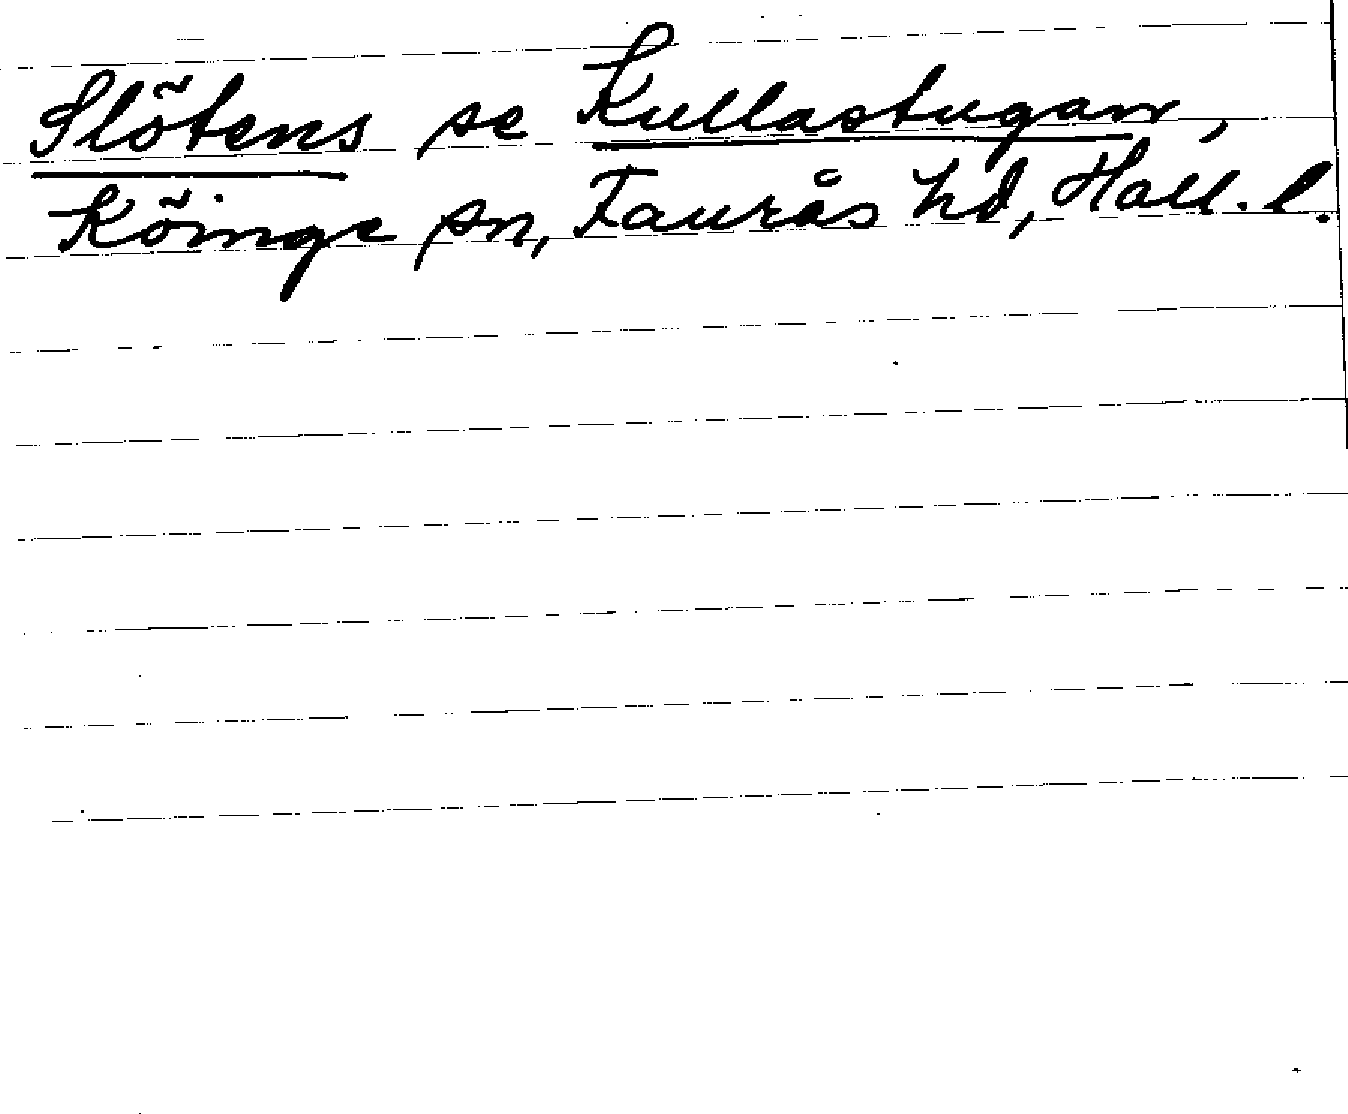 Slötens se Kullastugan,
Köinge sn, Faurås hd, Hall. l.